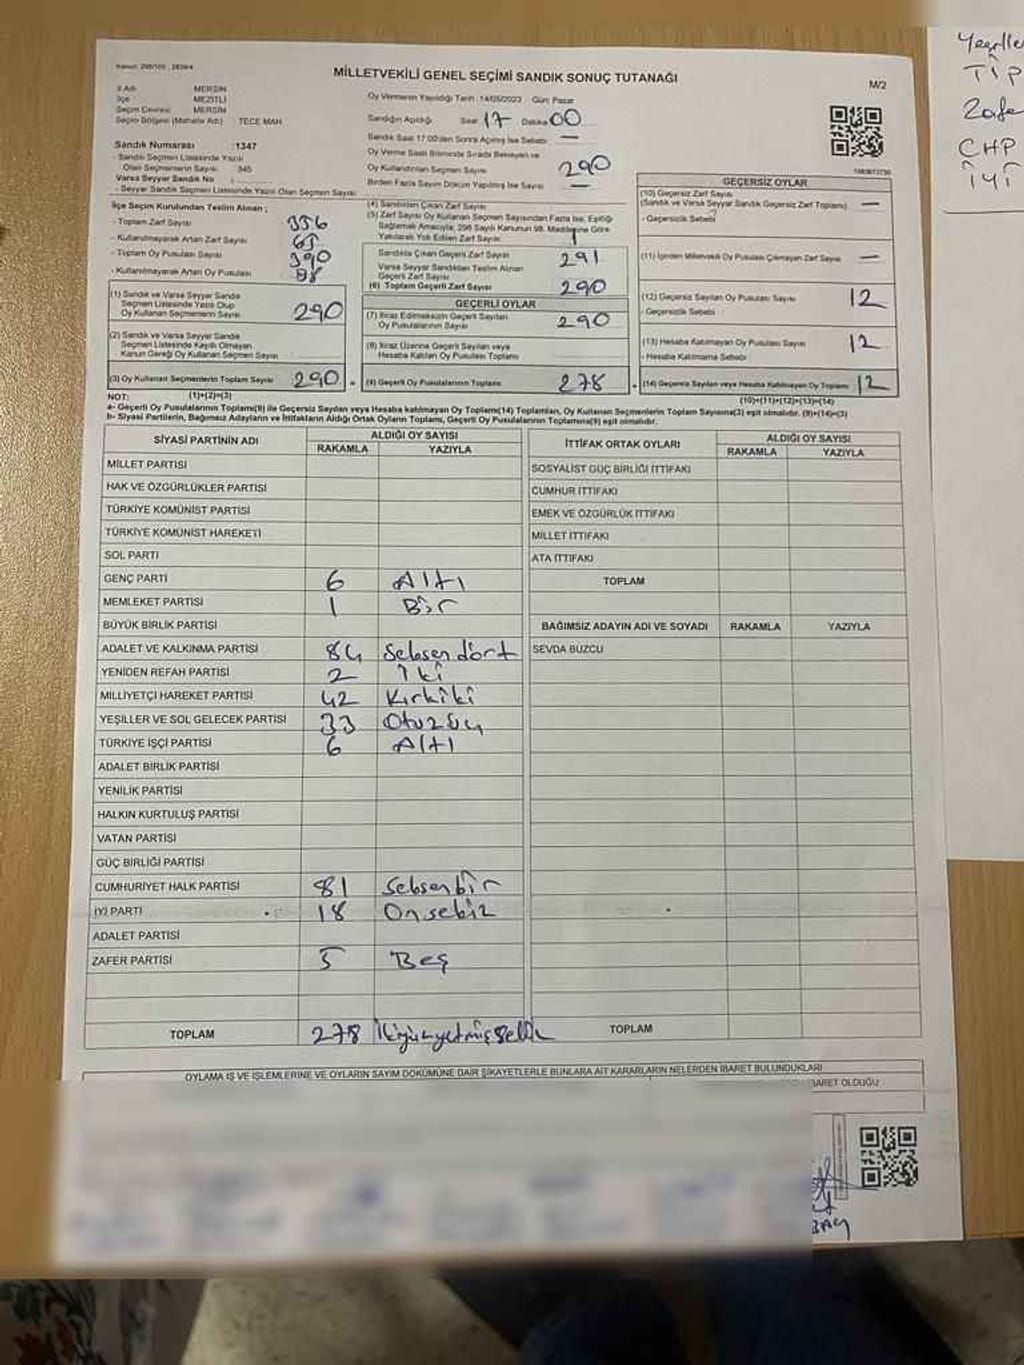 MİLLETVEKİLİ GENEL SEÇİMİ SANDIK SONUÇ TUTANAĞI
M/2
İl Adı : MERSİN
İlçe : MEZİTLİ
Seçim Çevresi : MERSİN
Seçim Bölgesi (Mahalle Adı) : TECE MAH
Sandık Numarası : 1347
- Sandık Seçmen Listesinde Yazılı
Olan Seçmenlerin Sayısı : 345
Varsa Seyyar Sandık No
- Seyyar Sandık Seçmen Listesinde Yazılı Olan Seçmen Sayısı
Oy Vermenin Yapıldığı Tarih : 14/05/2023 Gün: Pazar
Sandığın Açıldığı Saat 17 Dakika 00
Sandık Saat 17:00'den Sonra Açılmış İse Sebebi : —
Oy Verme Saati Bitiminde Sırada Bekleyen ve
Oy Kullandırılan Seçmen Sayısı 290
Birden Fazla Sayım Döküm Yapılmış İse Sayısı —
İlçe Seçim Kurulundan Teslim Alınan ;
- Toplam Zarf Sayısı 356
- Kullanılmayarak Artan Zarf Sayısı 65
- Toplam Oy Pusulası Sayısı 390
- Kullanılmayarak Artan Oy Pusulası 98
(1) Sandık ve Varsa Seyyar Sandık
Seçmen Listesinde Yazılı Olup
Oy Kullanan Seçmenlerin Sayısı 290
(2) Sandık ve Varsa Seyyar Sandık
Seçmen Listesinde Kayıtlı Olmayan
Kanun Gereği Oy Kullanan Seçmen Sayısı
(3) Oy Kullanan Seçmenlerin Toplam Sayısı 290
(1)+(2)=(3)
(4) Sandıktan Çıkan Zarf Sayısı
(5) Zarf Sayısı Oy Kullanan Seçmen Sayısından Fazla İse, Eşitliği
Sağlamak Amacıyla, 298 Sayılı Kanunun 98. Maddesine Göre
Yakılarak Yok Edilen Zarf Sayısı 1
Sandıkta Çıkan Geçerli Zarf Sayısı 291
Varsa Seyyar Sandıktan Teslim Alınan
Geçerli Zarf Sayısı
(6) Toplam Geçerli Zarf Sayısı 290
GEÇERLİ OYLAR
(7) İtiraz Edilmeksizin Geçerli Sayılan
Oy Pusulalarının Sayısı 290
(8) İtiraz Üzerine Geçerli Sayılan veya
Hesaba Katılan Oy Pusulası Toplamı
(9) Geçerli Oy Pusulalarının Toplamı 278
GEÇERSİZ OYLAR
(10) Geçersiz Zarf Sayısı
(Sandık ve Varsa Seyyar Sandık Geçersiz Zarf Toplamı) —
- Geçersizlik Sebebi
(11) İçinden Milletvekili Oy Pusulası Çıkmayan Zarf Sayısı —
(12) Geçersiz Sayılan Oy Pusulası Sayısı 12
- Geçersizlik Sebebi
(13) Hesaba Katılmayan Oy Pusulası Sayısı 12
- Hesaba Katılmama Sebebi
(14) Geçersiz Sayılan veya Hesaba Katılmayan Oy Toplamı 12
(10)+(11)+(12)+(13)=(14)
NOT:
a- Geçerli Oy Pusulalarının Toplamı(9) ile Geçersiz Sayılan veya Hesaba katılmayan Oy Toplamı(14) Toplamları, Oy Kullanan Seçmenlerin Toplam Sayısına(3) eşit olmalıdır. (9)+(14)=(3)
b- Siyasi Partilerin, Bağımsız Adayların ve İttifakların Aldığı Ortak Oyların Toplamı, Geçerli Oy Pusulalarının Toplamına(9) eşit olmalıdır.
SİYASİ PARTİNİN ADI ALDIĞI OY SAYISI
RAKAMLA YAZIYLA
MİLLET PARTİSİ
HAK VE ÖZGÜRLÜKLER PARTİSİ
TÜRKİYE KOMÜNİST PARTİSİ
TÜRKİYE KOMÜNİST HAREKETİ
SOL PARTİ
GENÇ PARTİ 6 Altı
MEMLEKET PARTİSİ 1 Bir
BÜYÜK BİRLİK PARTİSİ
ADALET VE KALKINMA PARTİSİ 84 Seksen dört
YENİDEN REFAH PARTİSİ 2 İki
MİLLİYETÇİ HAREKET PARTİSİ 42 Kırkiki
YEŞİLLER VE SOL GELECEK PARTİSİ 33 Otuzüç
TÜRKİYE İŞÇİ PARTİSİ 6 Altı
ADALET BİRLİK PARTİSİ
YENİLİK PARTİSİ
HALKIN KURTULUŞ PARTİSİ
VATAN PARTİSİ
GÜÇ BİRLİĞİ PARTİSİ
CUMHURİYET HALK PARTİSİ 81 Seksenbir
İYİ PARTİ 18 Onsekiz
ADALET PARTİSİ
ZAFER PARTİSİ 5 Beş
TOPLAM 278
İTTİFAK ORTAK OYLARI ALDIĞI OY SAYISI
RAKAMLA YAZIYLA
SOSYALİST GÜÇ BİRLİĞİ İTTİFAKI
CUMHUR İTTİFAKI
EMEK VE ÖZGÜRLÜK İTTİFAKI
MİLLET İTTİFAKI
ATA İTTİFAKI
TOPLAM
BAĞIMSIZ ADAYIN ADI VE SOYADI RAKAMLA YAZIYLA
SEVDA BUZCU
TOPLAM
OYLAMA İŞ VE İŞLEMLERİNE VE OYLARIN SAYIM DÖKÜMÜNE DAİR ŞİKAYETLERLE BUNLARA AİT KARARLARIN NELERDEN İBARET BULUNDUKLARI
BARET OLDUĞU
TİP
Zafe
CHP
İYİ